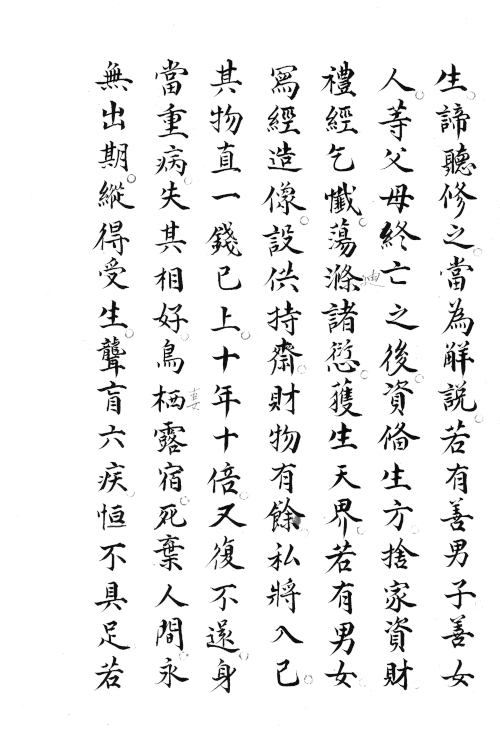 生諦聽修之當為觧説若有善男子善女
人等父母終亡之後資俻生方捨家資財
禮經乞懺蕩滌諸愆獲生天界若有男女
寫經造像設供持齋財物有餘私將入己
其物直一錢已上十年十倍又復不還身
當重病失其相好鳥栖露宿死棄人間永
無出期縱得受生聾盲六疾恒不具足若